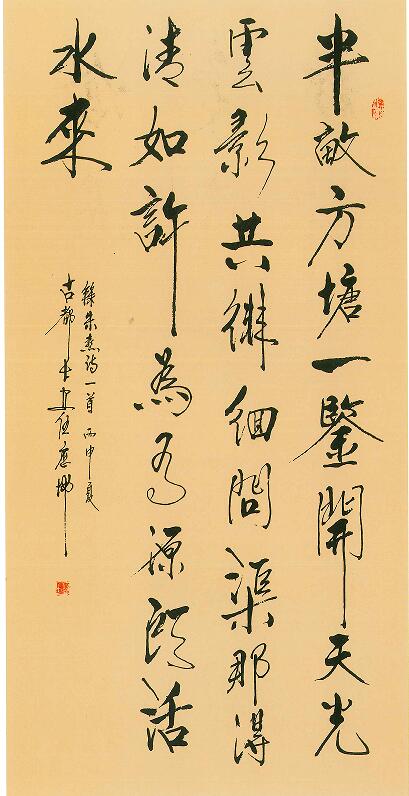 半畝方塘一鑒開天光
雲影共徘徊問渠那得
清如許為有源頭活
水來
錄朱熹詩一首 丙申夏
古都長安任應